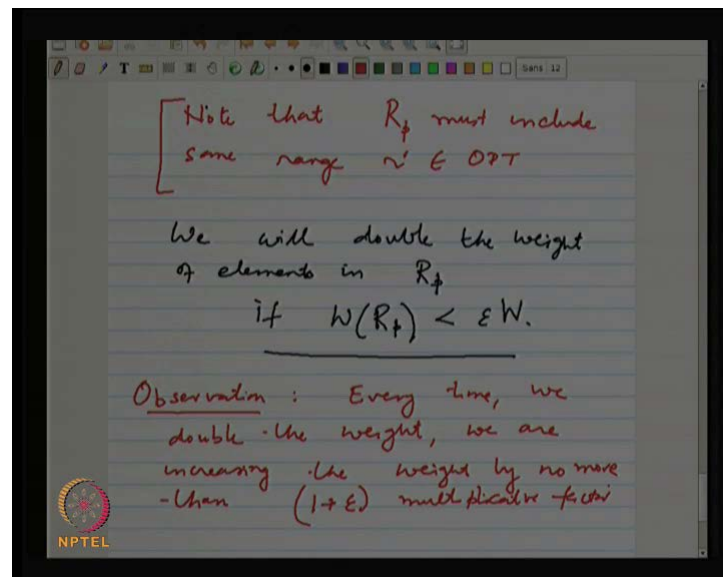 T
Sans 12
Note that Rp must include
some range r' ∈ OPT
We will double the weight
of elements in Rp
if W(Rp) < εW.
Observation : Every time, we
double the weight, we are
increasing the weight by no more
than (1+ε) multiplicative factor
NPTEL